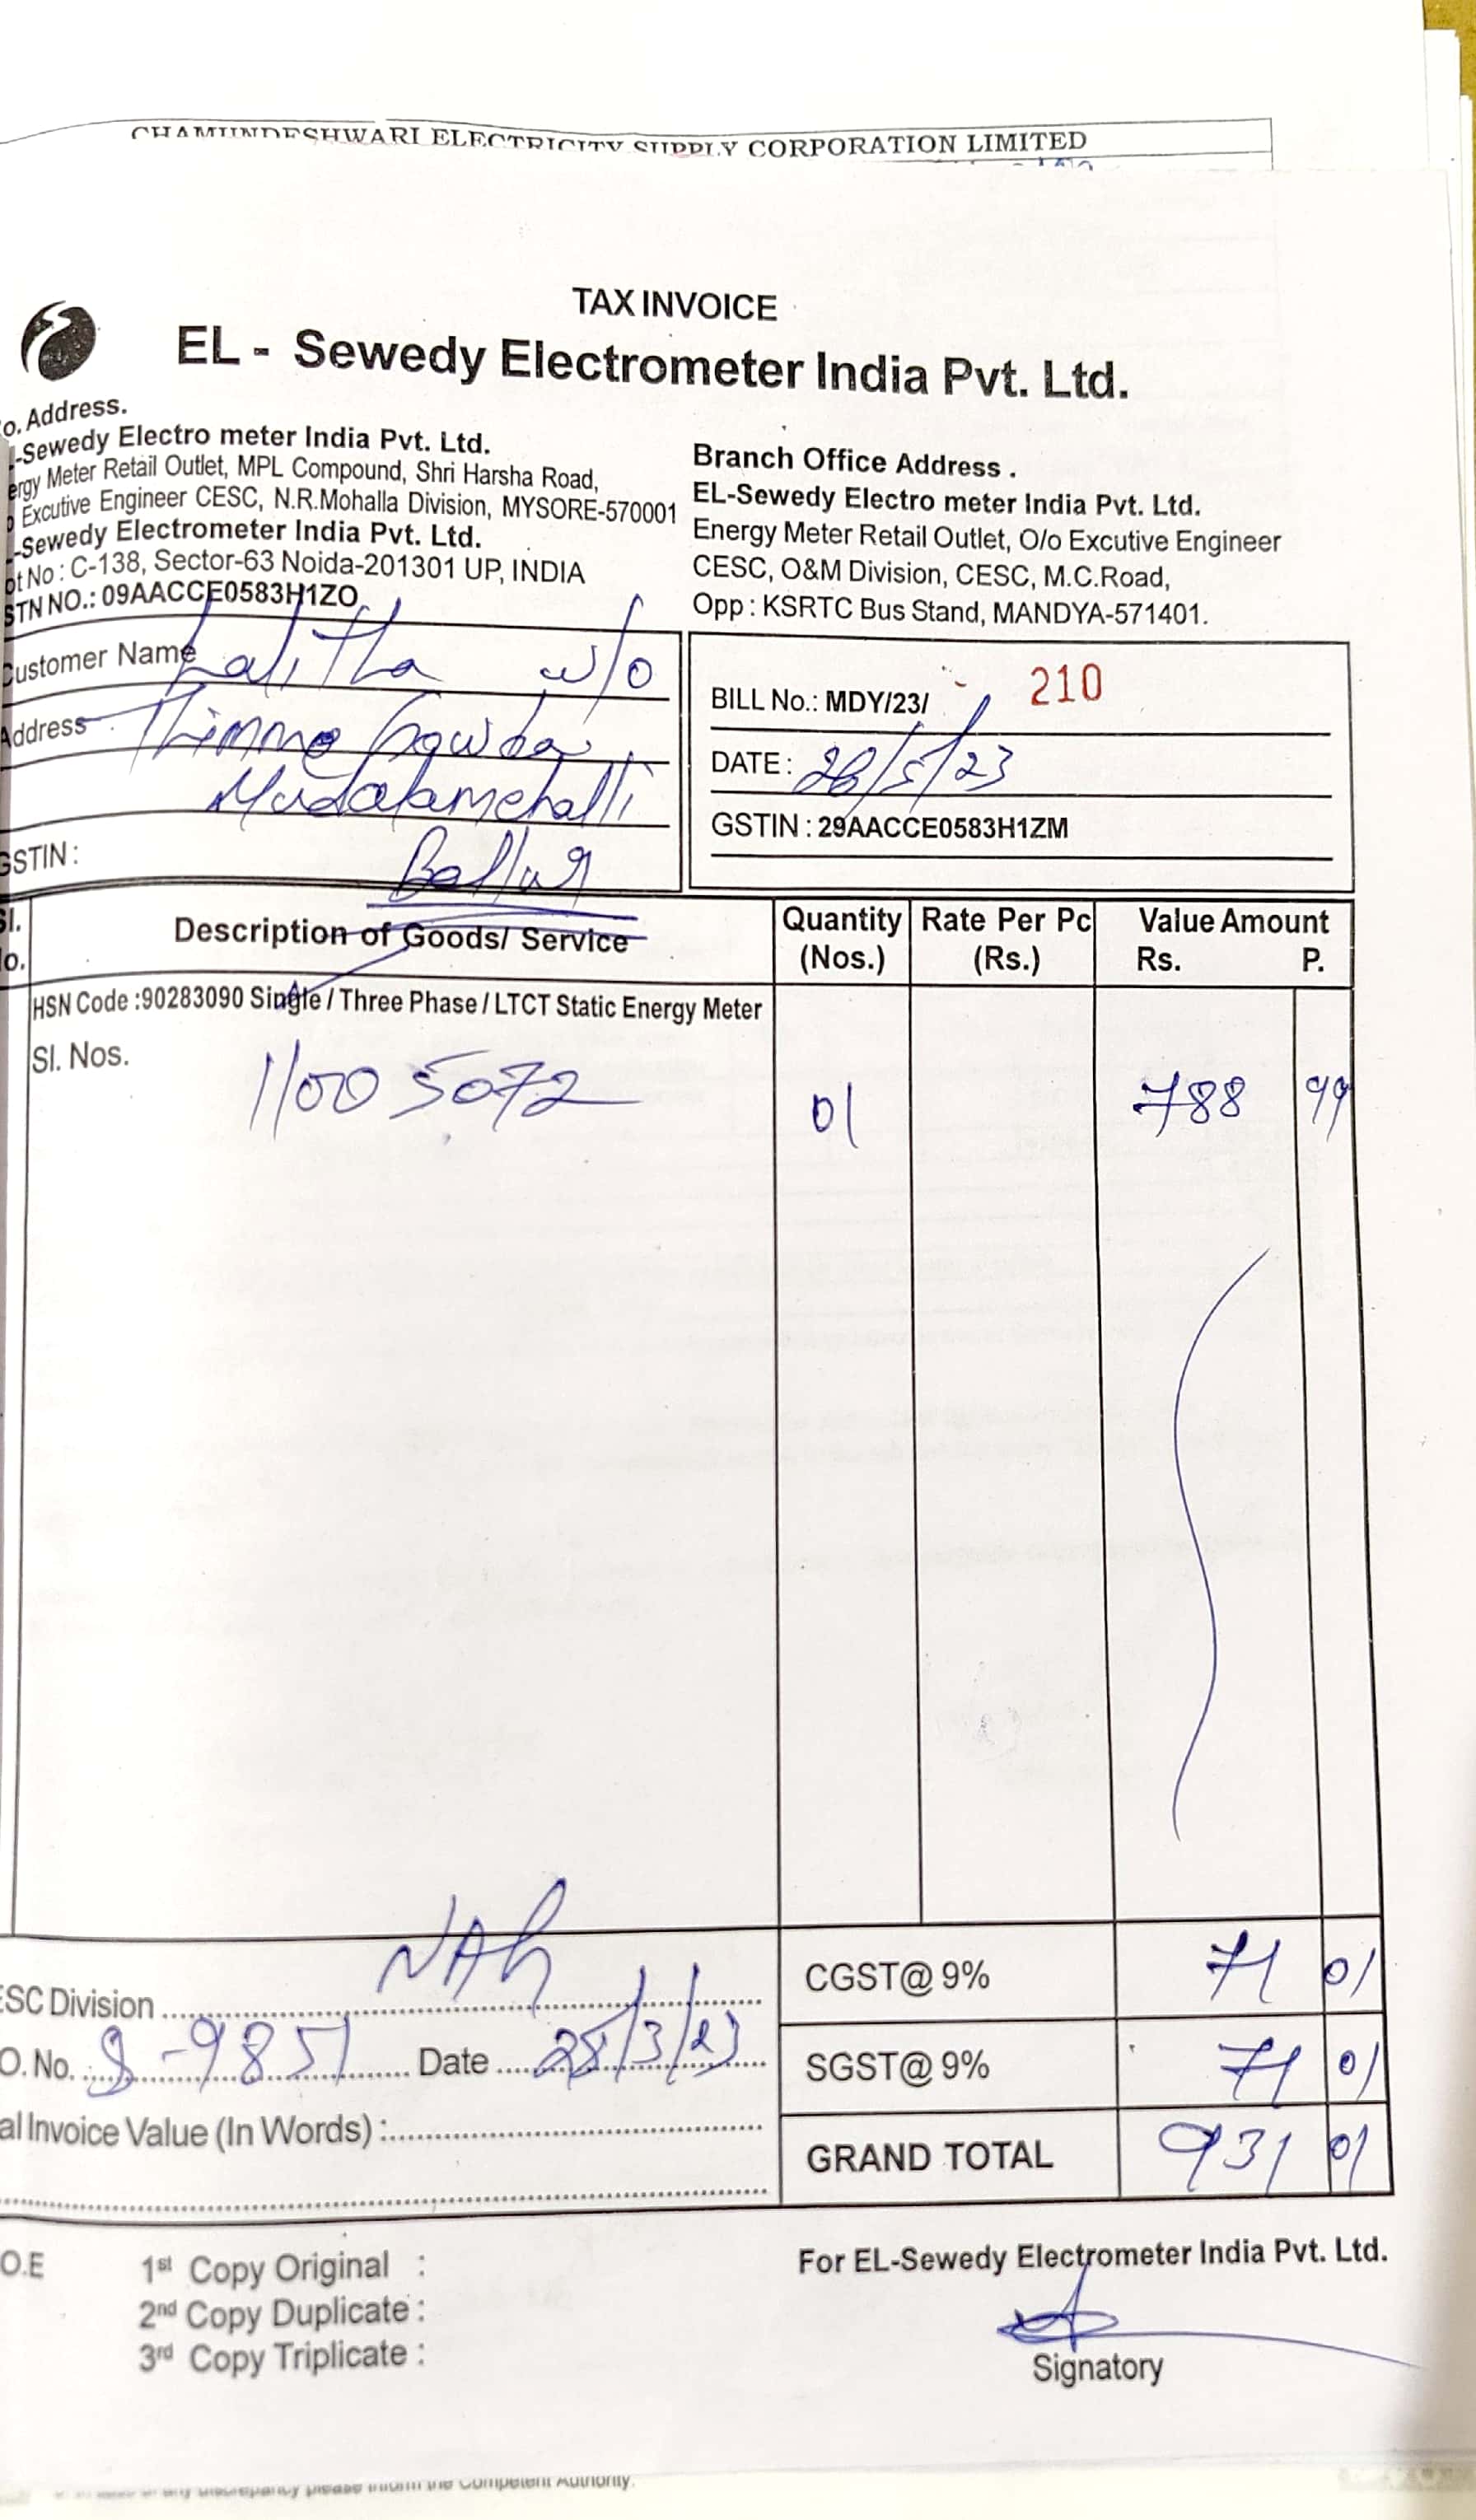 CHAMUNDESHWARI ELECTRICITY SUPPLY CORPORATION LIMITED
TAX INVOICE
EL - Sewedy Electrometer India Pvt. Ltd.
o. Address.
-Sewedy Electro meter India Pvt. Ltd.
ergy Meter Retail Outlet, MPL Compound, Shri Harsha Road,
Excutive Engineer CESC, N.R.Mohalla Division, MYSORE-570001
-Sewedy Electrometer India Pvt. Ltd.
ot No : C-138, Sector-63 Noida-201301 UP, INDIA
STN NO.: 09AACCE0583H1ZO
Branch Office Address .
EL-Sewedy Electro meter India Pvt. Ltd.
Energy Meter Retail Outlet, O/o Excutive Engineer
CESC, O&M Division, CESC, M.C.Road,
Opp : KSRTC Bus Stand, MANDYA-571401.
Customer Name Lalitha w/o
Address Thimme Gowda
GSTIN :
BILL No.: MDY/23/ 210
DATE : /5/23
GSTIN : 29AACCE0583H1ZM
Sl. No. Description of Goods/ Service Quantity (Nos.) Rate Per Pc (Rs.) Value Amount Rs. P.
HSN Code :90283090 Single / Three Phase / LTCT Static Energy Meter
Sl. Nos. 11005072 01 788 99
ESC Division
CGST@ 9% 71 01
O. No. 8-9851 Date 28/3/23
SGST@ 9% 71 01
al Invoice Value (In Words) :
GRAND TOTAL 931 01
O.E
1st Copy Original :
2nd Copy Duplicate :
3rd Copy Triplicate :
For EL-Sewedy Electrometer India Pvt. Ltd.
Signatory
any discrepancy please inform the Competent Authority.